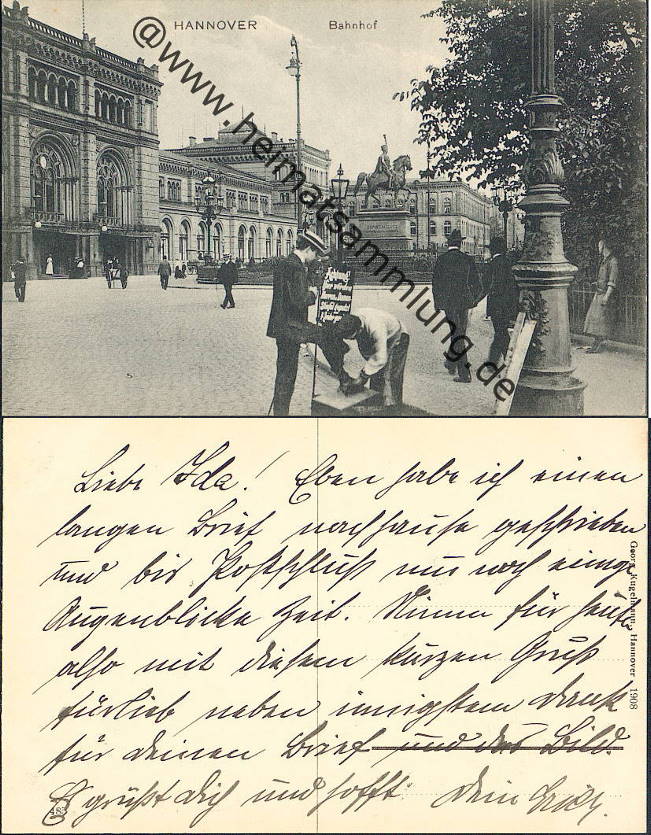 HANNOVER Bahnhof
@www.heimatsammlung.de
Achtung!
Liebe Ida! Eben habe ich einen
langen Brief nachhause geschrieben
und bis Postschluß nur noch einige
Augenblicke Zeit. Nimm für heute
also mit diesem kurzen Gruß
fürlieb neben innigstem Dank
für deinen Brief und das Bild.
Es grüßt Dich und hofft Dein
Georg Kugelmann, Hannover 1908